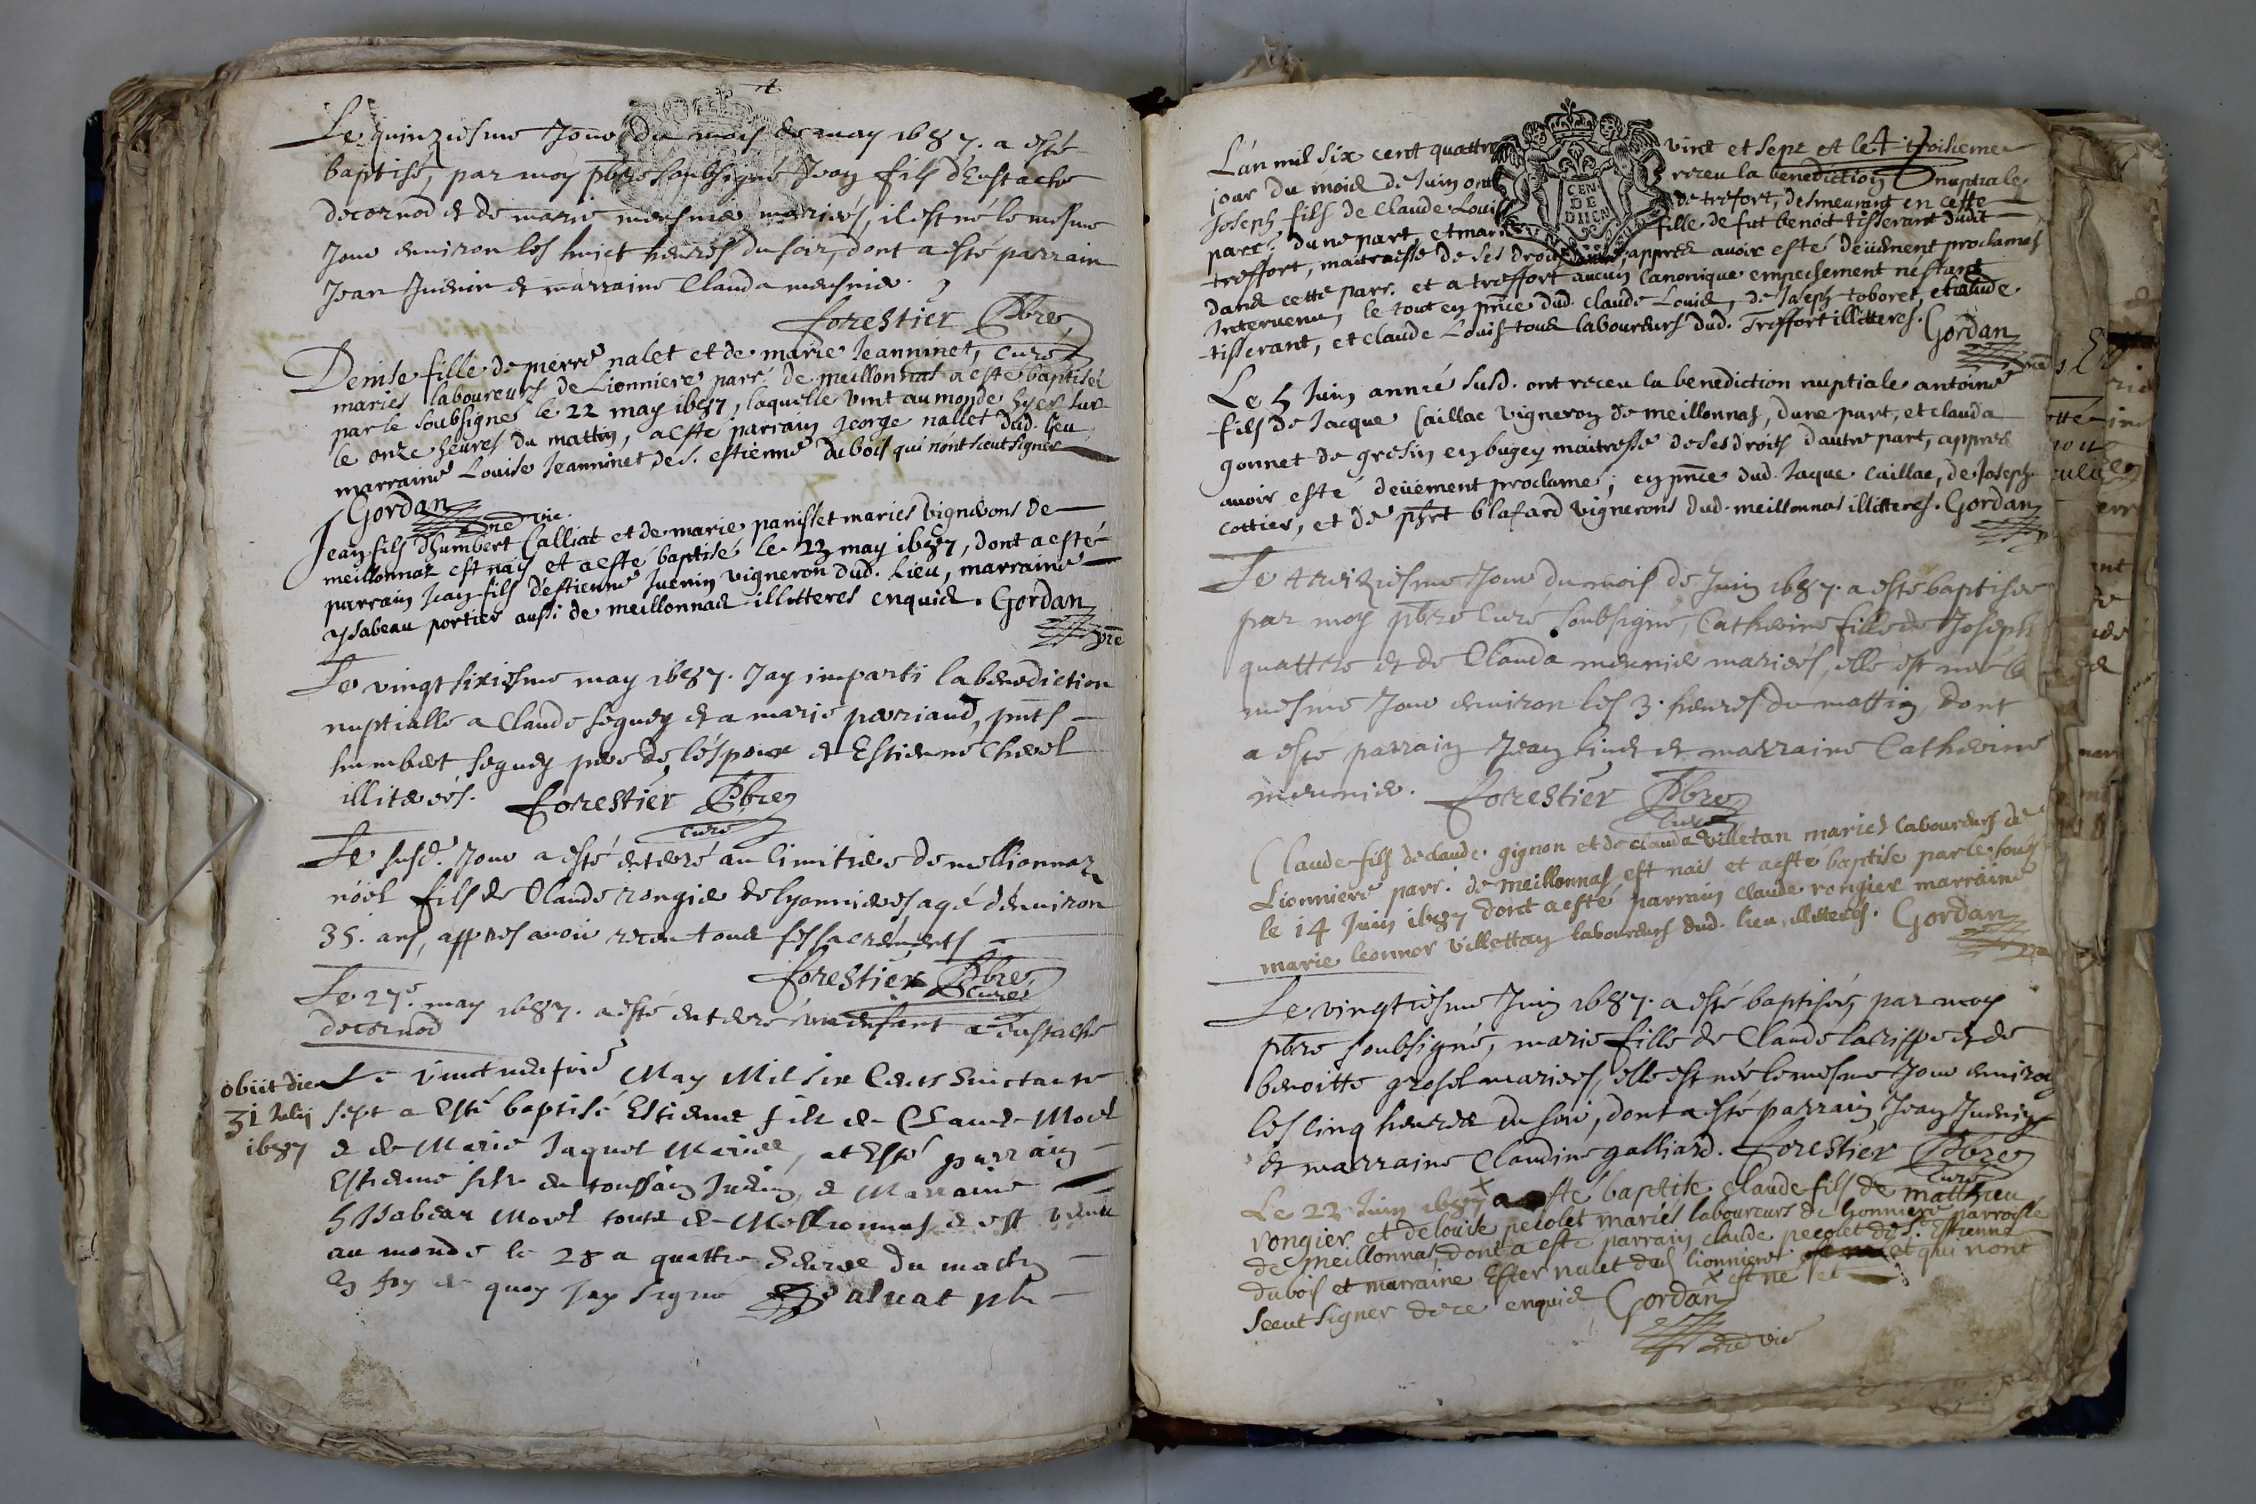 Le quinziesme Jour du mois de may 1687. a esté
baptisé, par moy pbre soubsigné Jean fils d'Eustache
decornod et de marie meusnier mariés, il est né le mesme
Jour environ les huict heures du soir, dont a esté parrain
Jean Juenin et marraine Clauda meusnier.
forestier Pbre
curé
Denise fille de pierre nalet et de marie Jeanninet,
mariés laboureurs de Lionniere parr. de meillonnas a esté baptisée
par le soubsigné le 22 may 1687, laquelle vint au monde hyer sur
le onze heures du mattin, a esté parrain George nallet dud. lieu
marraine Louise Jeanninet de S. estienne du bois qui n'ont sceut signer
Gordan
vic.
Jean fils d'humbert Calliat et de marie panisset mariés vignerons de
meillonnas est nay et a esté baptisé le 23 may 1687, dont a esté
parrain Jean fils d'estienne Juenin vigneron dud. lieu, marraine
ysabeau portier aussi de meillonnas illitteres enquis. Gordan
pre
Le vingt sixiesme may 1687. Jay imparti la benediction
nuptialle a Claude seguey et a marie perriaud, pnts
humbert seguey pere de l'éspoux et Estienne Chevel
illiterés. forestier Pbre
curé
Le susd. Jour a esté enterré au cimitiere de mellionnaz
nöel fils de Claude rongier de lyonnieres agé d'environ
35. ans, appres avoir receu tous ses sacrements
forestier Pbre
curé
Le 27e. may 1687. a esté enterré un enfant a Eustache
decornod
obiit die
31 Julij
1687
Le vint neufvie May Mil six Cents huictante
sept a Esté baptisé Estienne fils de Claude Morel
& de Marie Jaquet Mariés, at Esté parrain
Estienne fils de toussain Juenin, & Marraine
Ysabeau Morel touts de Mellionnas & est venu
au monde le 28 a quattre heures du matin
En foy de quoy Jay signé
L'an mil six cent quattre vint et sept et le 4 troisieme
jour du mois de Juin ont receu la benediction nuptiale
Joseph fils de Claude Louis de trefort, desmeurant en cette
parr. d'une part et marie fille de fut benoit tisserant dudit
treffort, maitraesse de ses droits, appres avoir esté deüement proclamés
dans cette parr. et a treffort aucun canonique empechement n'estant
Intervenu, le tout en pnce dud. Claude Louis, de Joseph toboret, claude
tisserant, et claude Louis tous laboureurs dud. Treffort illitteres. Gordan
Le 5 Juin année susd. ont receu la benediction nuptiale antoine
fils de Jacque Caillac vigneron de meillonnas, d'une part, et clauda
gonnet de gresin en bugey maitresse de ses droits d'autre part, appres
avoir esté deüement proclamé, en pnce dud. Jaque Caillac, de Joseph
cottier, et de phrt blafard vignerons dud. meillonnas illitteres. Gordan
Le treiziesme Jour du mois de Juin 1687. a esté baptisée
par moy pbre curé soubsigné, Catherine fille de Joseph
quattre et de Clauda meunier mariés, elle est née le
mesme Jour environ les 3. heures du mattin, dont
a esté parrain Jean et marraine Catherine
meunier. forestier Pbre
curé
Claude fils de claude gignon et de clauda Villetan mariés laboureurs de
Lionniere parr. de meillonnas est nais et a esté baptise par le soubs
le 14 Juin 1687 dont a esté parrain claude rongier marraine
marie leonnor villettan laboureurs dud. lieu, illitterés. Gordan
Le vingtiesme Juin 1687. a esté baptisée, par moy
pbre soubsigné, marie fille de Claude lariffe et de
benoitte grosel mariés, elle est née le mesme Jour environ
les cinq heures du soir, dont a esté parrain Jean Juenin
et marraine Claudine galliard. forestier Pbre
curé
Le 22 Juin 1687 x a esté baptisé claude fils de matthieu
rongier et de louise pecolet mariés laboureurs de lionniere parroisse
de meillonnas, dont a esté parrain claude pecolet de St. Estienne
dubois et marraine Ester nalet dud. lionniere et qui n'ont
sceut signer de ce enquis Gordan x est né et
vic